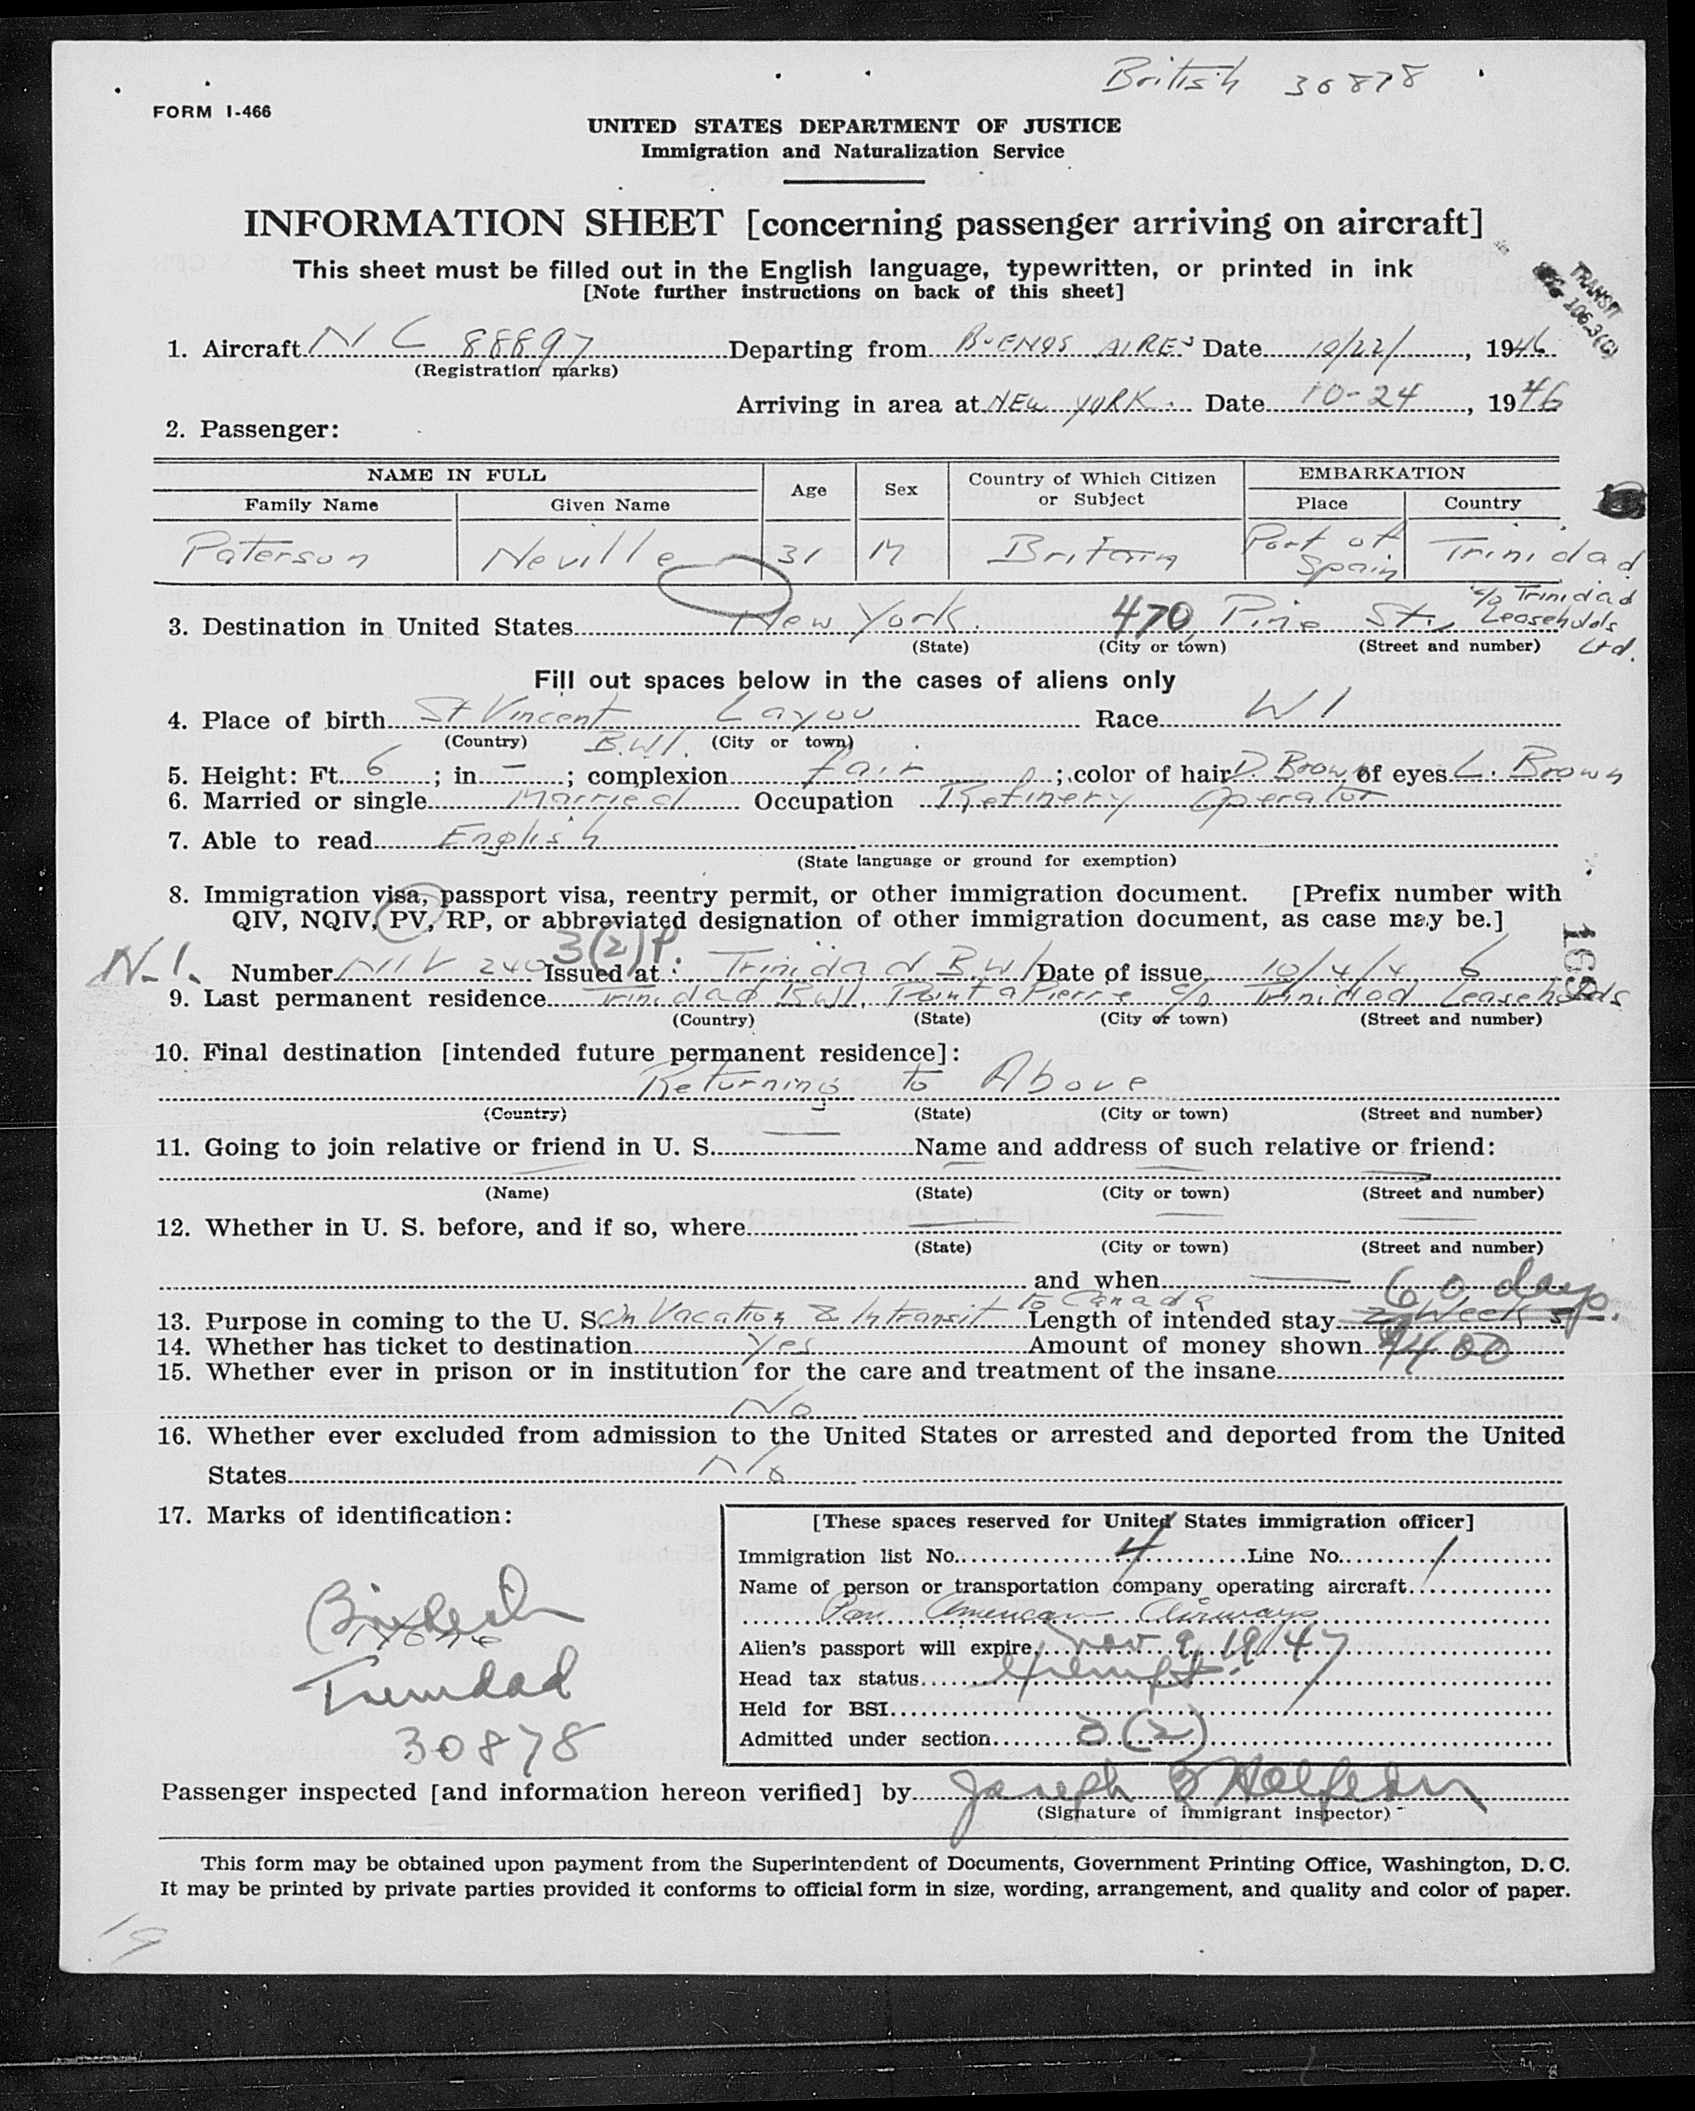 British 30878
FORM I-466
UNITED STATES DEPARTMENT OF JUSTICE
Immigration and Naturalization Service
INFORMATION SHEET [concerning passenger arriving on aircraft]
This sheet must be filled out in the English language, typewritten, or printed in ink
[Note further instructions on back of this sheet]
TRANSIT
106.3(C)
1. Aircraft NC 88897 Departing from BUENOS AIRES Date 10/22/, 1946
(Registration marks)
Arriving in area at NEW YORK. Date 10-24, 1946
2. Passenger:
NAME IN FULL Age Sex Country of Which Citizen or Subject EMBARKATION
Family Name Given Name Place Country
Paterson Neville 31 M Britain Port of Spain Trinidad
c/o Trinidad
3. Destination in United States New York. 470, Pine St., Leaseholds
(State) (City or town) (Street and number) Ltd.
Fill out spaces below in the cases of aliens only
4. Place of birth St Vincent Layou Race W I
(Country) B.W.I. (City or town)
5. Height: Ft. 6; in. —; complexion fair; color of hair D. Brown of eyes L. Brown
6. Married or single Married Occupation Refinery Operator
7. Able to read English
(State language or ground for exemption)
8. Immigration visa, passport visa, reentry permit, or other immigration document. [Prefix number with
QIV, NQIV, PV, RP, or abbreviated designation of other immigration document, as case may be.]
3(2)P.
N.I. Number NIV 240 Issued at: Trinidad B.W.I Date of issue 10/4/46
169
9. Last permanent residence Trinidad B.W.I., Point a Pierre c/o Trinidad Leaseholds
(Country) (State) (City or town) (Street and number)
10. Final destination [intended future permanent residence]:
Returning to Above
(Country) (State) (City or town) (Street and number)
11. Going to join relative or friend in U. S. — Name and address of such relative or friend:
(Name) (State) (City or town) (Street and number)
12. Whether in U. S. before, and if so, where
(State) (City or town) (Street and number)
and when — 60 days
to Canada
13. Purpose in coming to the U. S. On Vacation & Intransit Length of intended stay 2 Weeks.
14. Whether has ticket to destination Yes Amount of money shown $400
15. Whether ever in prison or in institution for the care and treatment of the insane
No
16. Whether ever excluded from admission to the United States or arrested and deported from the United
States No
17. Marks of identification:
None
British
Trinidad
30878
[These spaces reserved for United States immigration officer]
Immigration list No. 4 Line No. 1
Name of person or transportation company operating aircraft
Pan American Airways
Alien's passport will expire Nov 9, 1947
Head tax status exempt
Held for BSI
Admitted under section 3(2)
Passenger inspected [and information hereon verified] by Joseph
(Signature of immigrant inspector)
This form may be obtained upon payment from the Superintendent of Documents, Government Printing Office, Washington, D. C.
It may be printed by private parties provided it conforms to official form in size, wording, arrangement, and quality and color of paper.
19